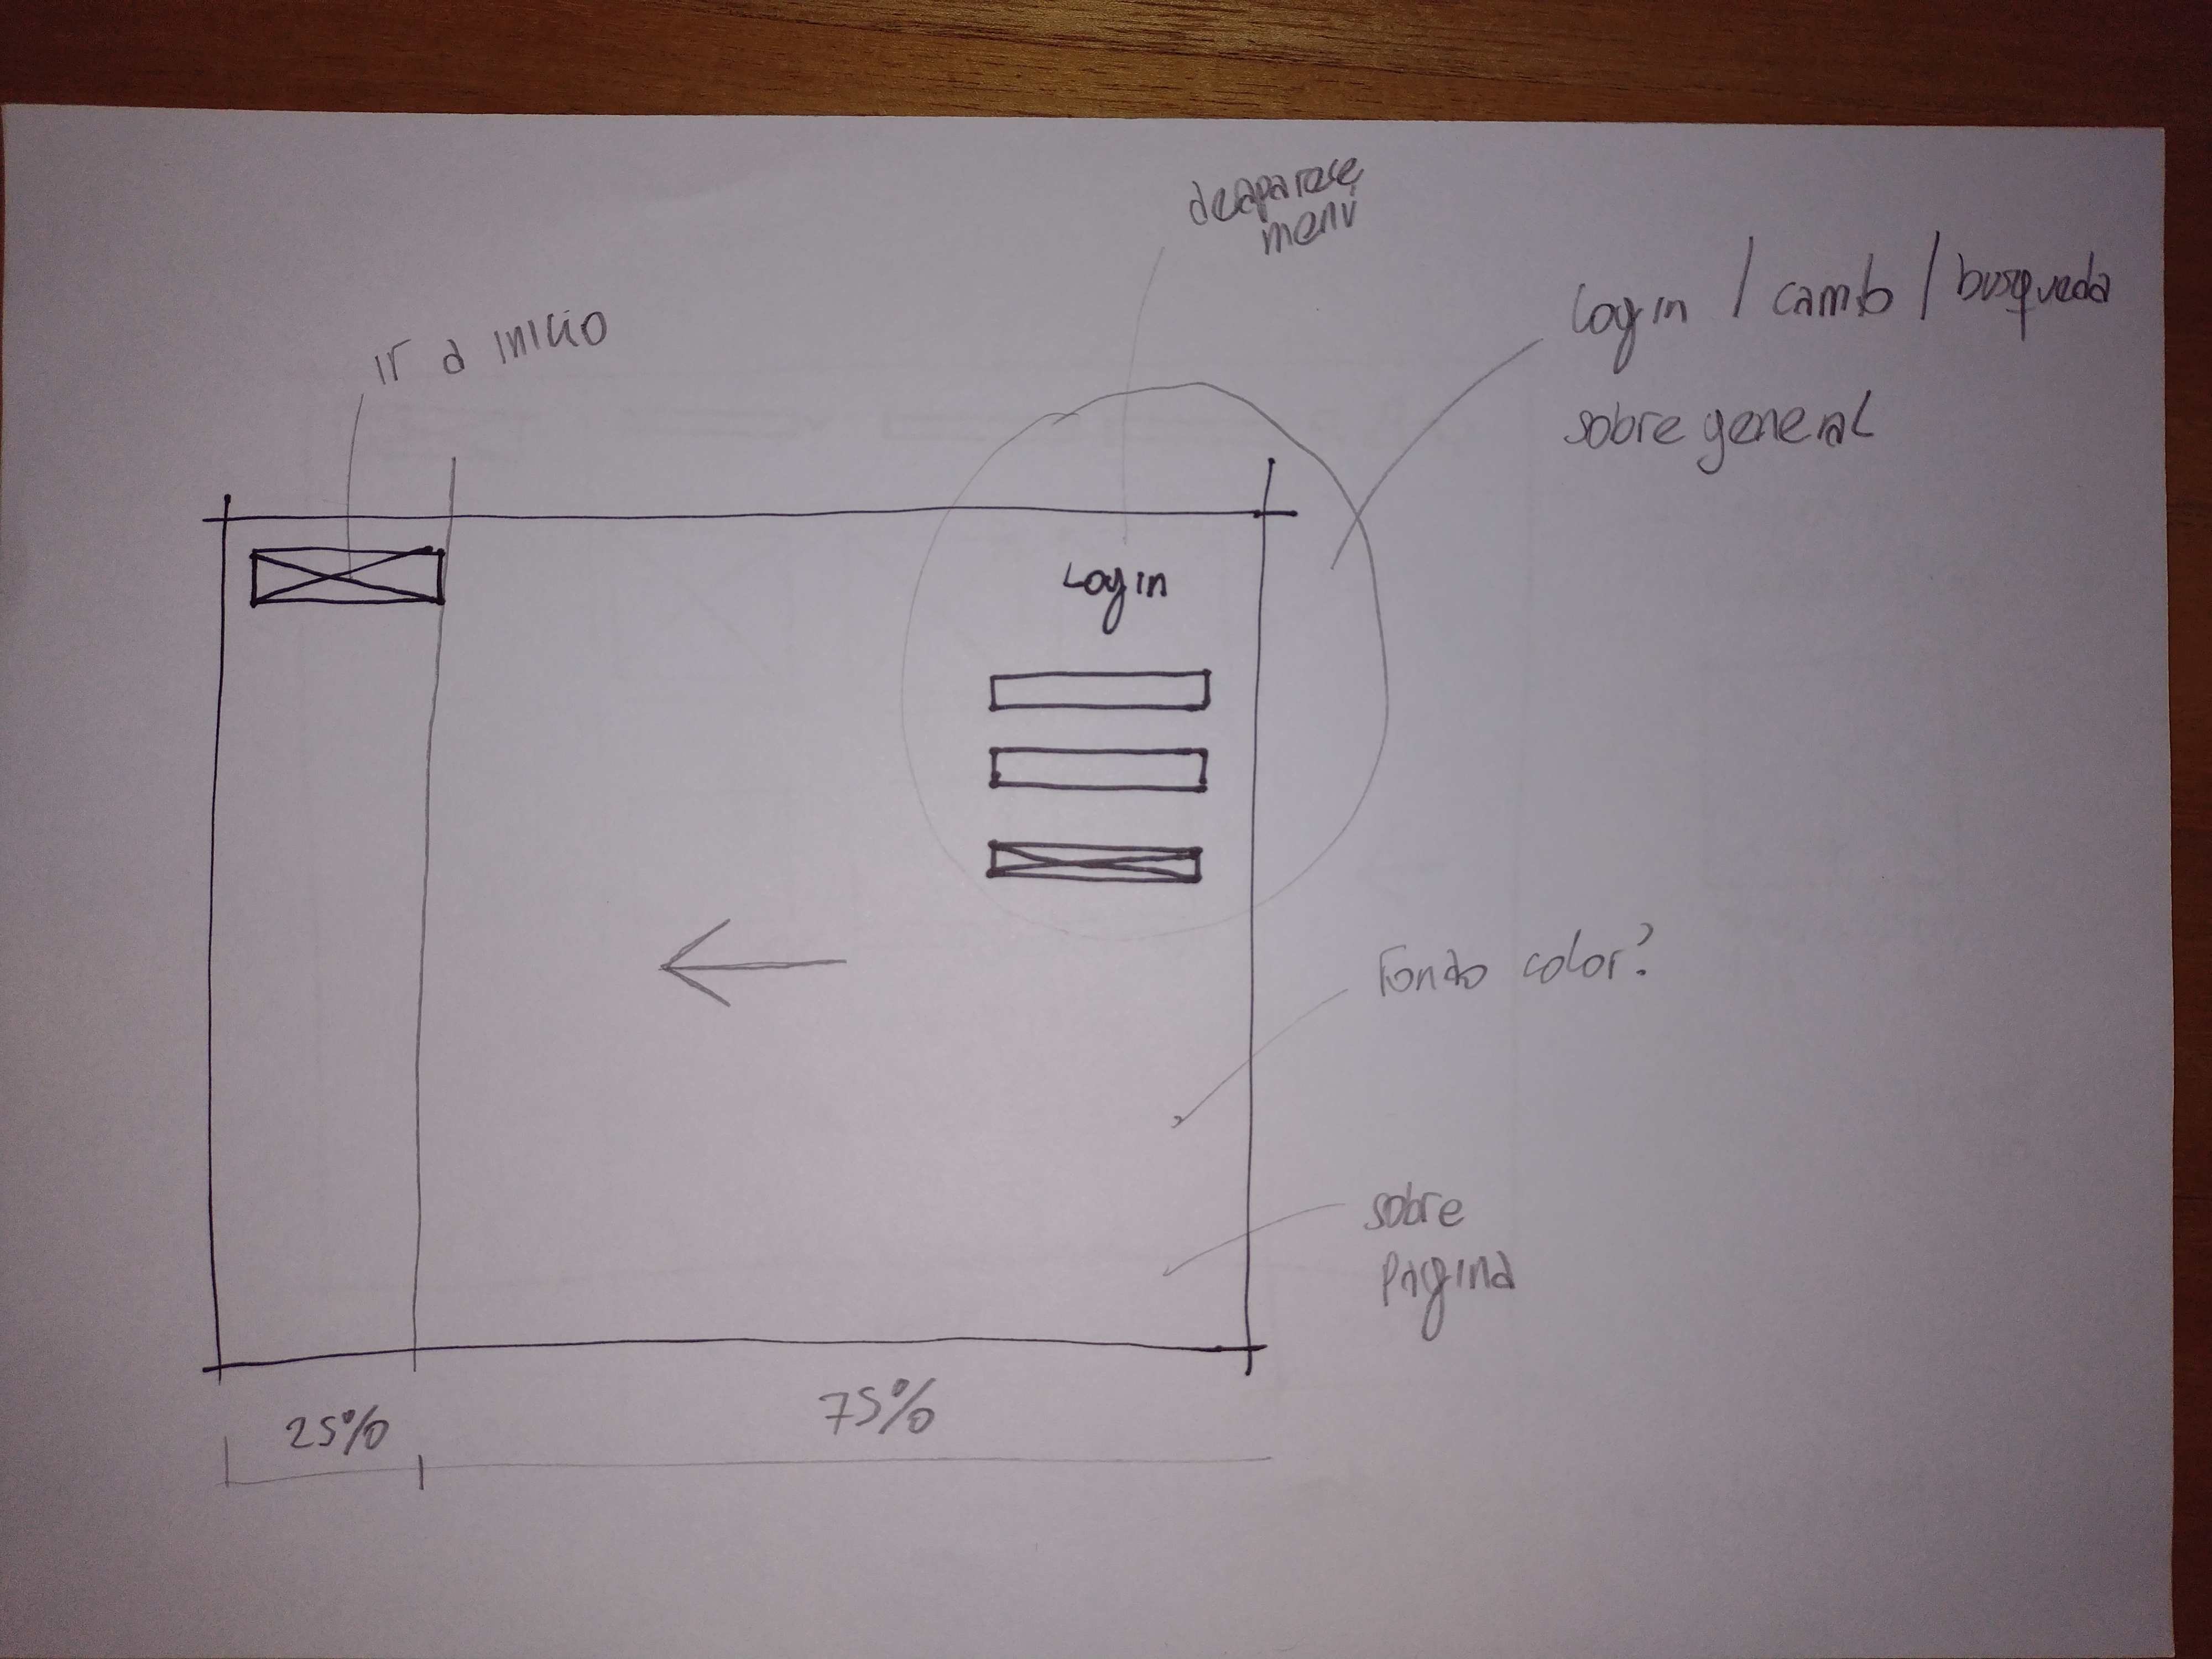 deaparese
menú
Login / camb / busqueda
sobre general
ir a inicio
Login
Fondo color?
sobre
Pagina
25%
75%